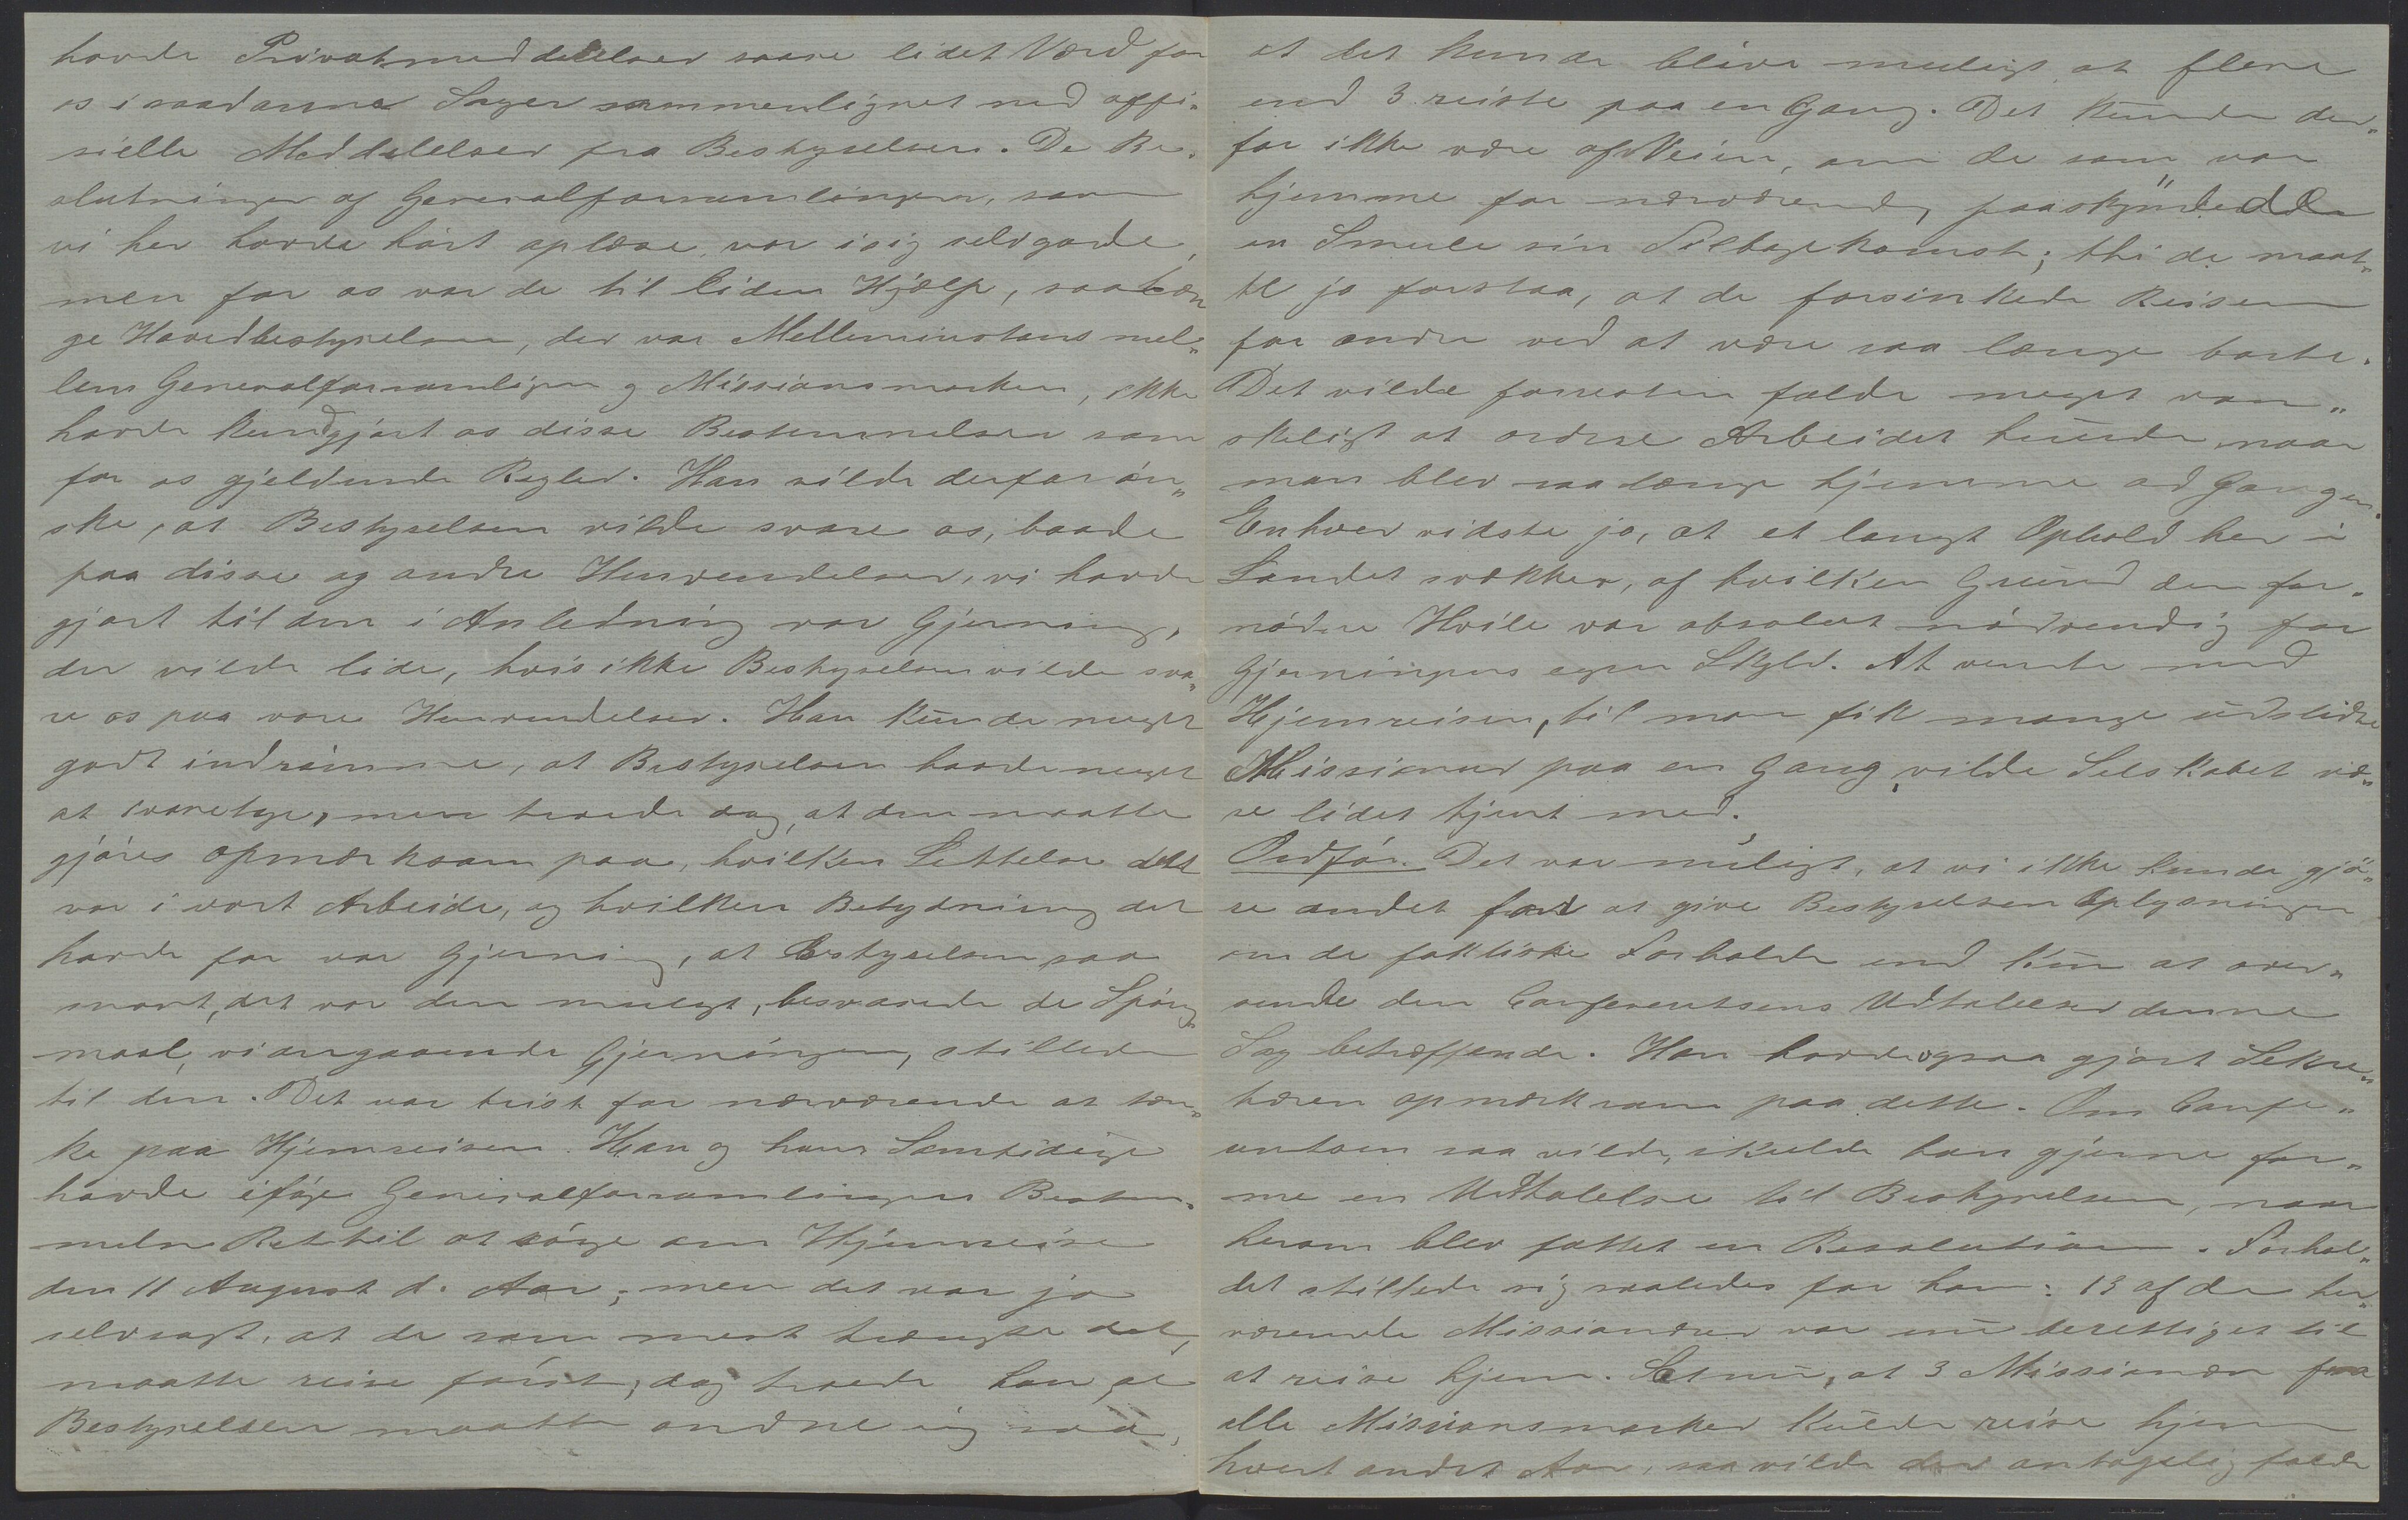 havde Privatmeddelelser saare lidet Værd for
os i saadanne Sager sammenlignet med offi-
sielle Meddelelser fra Bestyrelsen. De Be-
slutninger af Generalforsamlingen, som
vi her havde hørt oplæse, var i sig selv gode,
men for os var de til liden Hjælp, saalæn
ge Hovedbestyrelsen, der var Melleminstans mel„
lem Generalforsamligen og Missionsmarken, ikke
havde kundgjort os disse Bestemmelser som
for os gjeldende Regler. Han vilde derfor øn„
ske, at Bestyrelsen vilde svare os, baade
paa disse og andre Henvendelser, vi havde
gjort til den i Anledning vor Gjerning,
der vilde lide, hvis ikke Bestyrelsen vilde sva„
re os paa vore Henvendelser. Han kunde meget
godt indrømme, at Bestyrelsen havde meget
at varetage, men troede dog, at den maatte
gjøres opmærksom paa, hvilken Lettelse det
var i vort Arbeide, og hvilken Betydning det
havde for vor Gjerning, at Bestyrelsen saa
snart, det var den muligt, besvarede de Spørg„
maal, vi angaaende Gjerningen, stillede
til den. Det var trist for nærværende at tæn„
ke paa Hjemreisen. Han og hans Samtidige
havde ifølge Generalforsamlingens Bestem-
melse Ret til at søge om Hjemreise
den 11 August d. Aar; men det var jo
selvsagt, at de som mest trængte det,
maatte reise først, dog troede han, at
Bestyrelsen maatte ordne sig saa,
at det kunde blive muligt, at flere
end 3 reiste paa en Gang. Det kunde der„
for ikke være af Veien, om de som var
hjemme for nærværende, paaskyndede
en Smule sin Tilbagekomst; thi de maat„
te jo forstaa, at de forsinkede Reisen
for andre ved at være saa længe borte.
Det vilde forresten falde meget van„
skeligt at ordne Arbeidet herude, naar
man blev saa længe hjemme ad Gangen.
Enhver vidste jo, at et langt Ophold her i
Landet svækker, af hvilken Grund den for-
nødne Hvile var absolut nødvendig for
Gjerningens egen Skyld. At vente med
Hjemreisen, til man fik mange udslidte
Missionær paa en Gang, vilde Selskabet væ„
re lidet tjent med.
Ordfør. Det var muligt, at vi ikke kunde gjø„
re andet for at give Bestyrelsen Oplysninger
om de faktiske Forholde end kun at over„
sende den Conferentsens Udtalelser denne
Sag betræffende. Han havde ogsaa gjort Sekre„
tæren opmærksom paa dette. Om Confe„
rentsen saa vilde, skulde han gjerne for„
me en Udtalelse til Bestyrelsen, naar
herom blev fattet en Resolution. Forhol„
det stillede sig saaledes for ham: 13 af de her„
værende Missionærer var nu berettiget til
at reise hjem. Set nu, at 3 Missionær fra
alle Missionsmarker kunde reise hjem
hvert andet Aar, saa vilde der antagelig falde